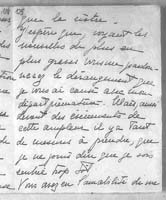 que la nôtre.
J'espère que, voyant les
nouvelles de plus en
plus graves vous me pardon-
nerez le dérangement que
je vous ai causé avec mon
désir d'information. Mais, aussi
devant des événements de
cette ampleur il y a tant
de mesures à prendre que
je ne jouis dire que je sois
entré hop
Vous avez eu l'amabilité de me